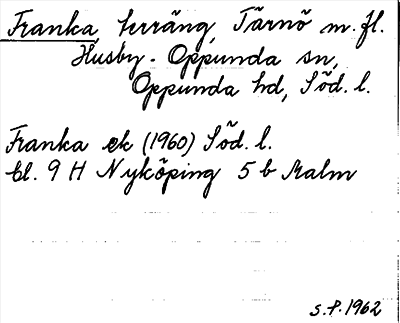 Franka, terräng, Tärnö m.fl.
Husby-Oppunda sn,
Oppunda hd, Söd. l.
Franka ek (1960) Söd. l.
bl. 9 H Nyköping 5 b Malm
S.P. 1962